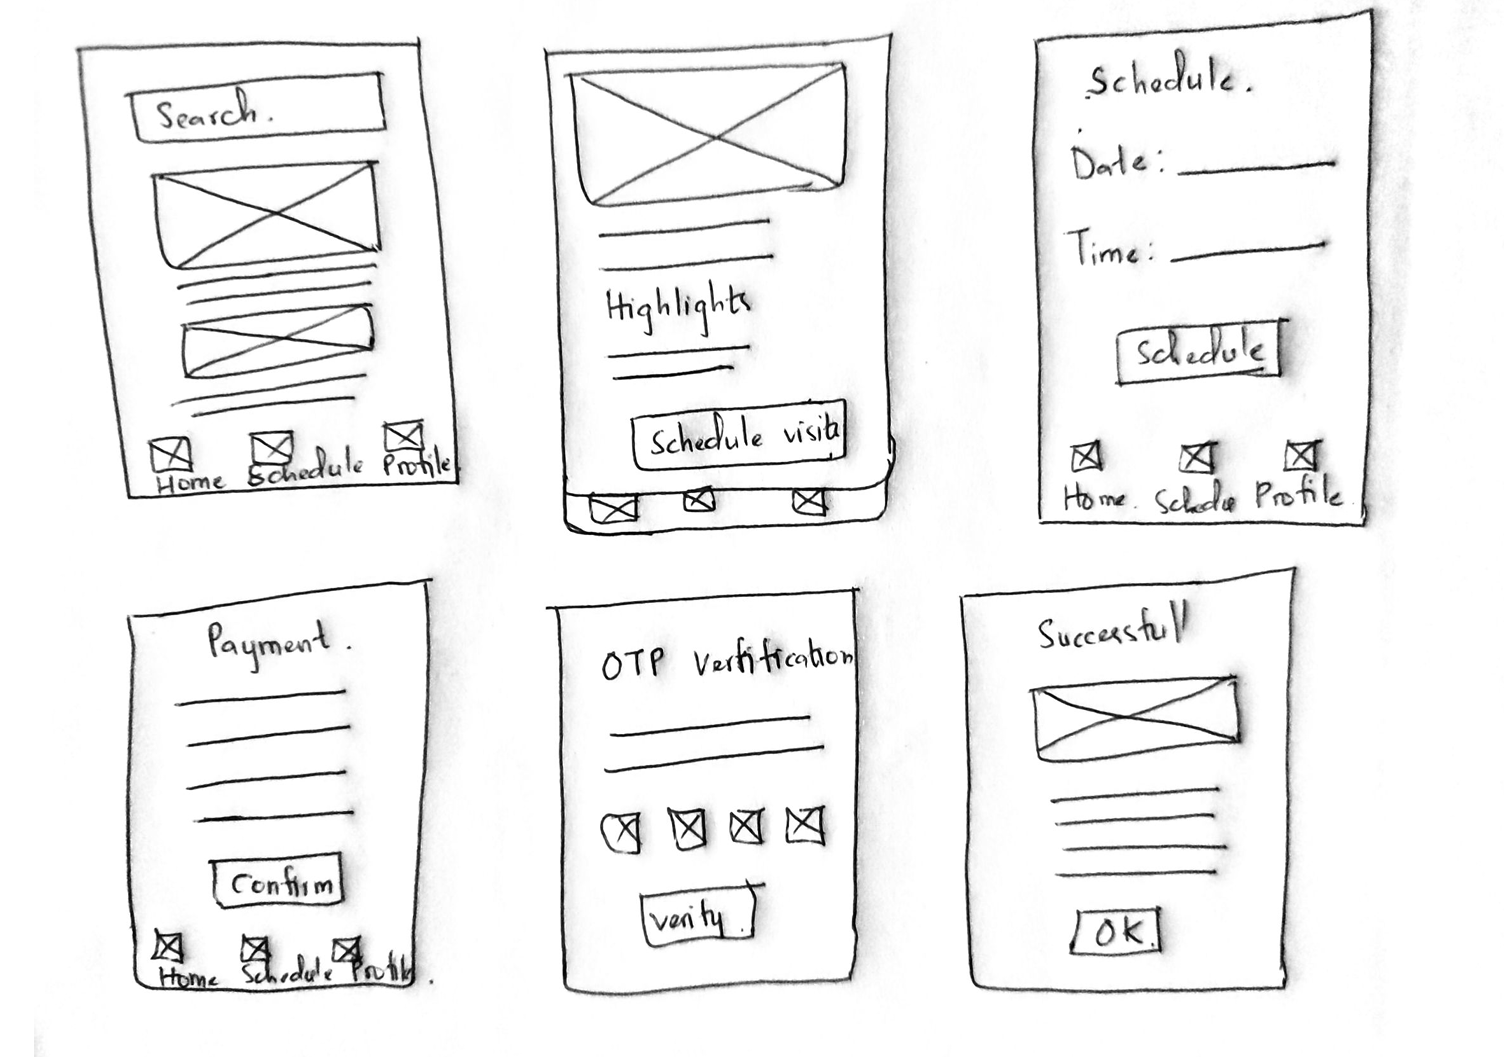 Search.
Home Schedule Profile
Highlights
Schedule visit
Schedule.
Date:
Time:
Schedule
Home. Schedue Profile.
Payment.
Confirm
Home Schedule Profile.
OTP Verfification
Verify.
Successfull
OK.